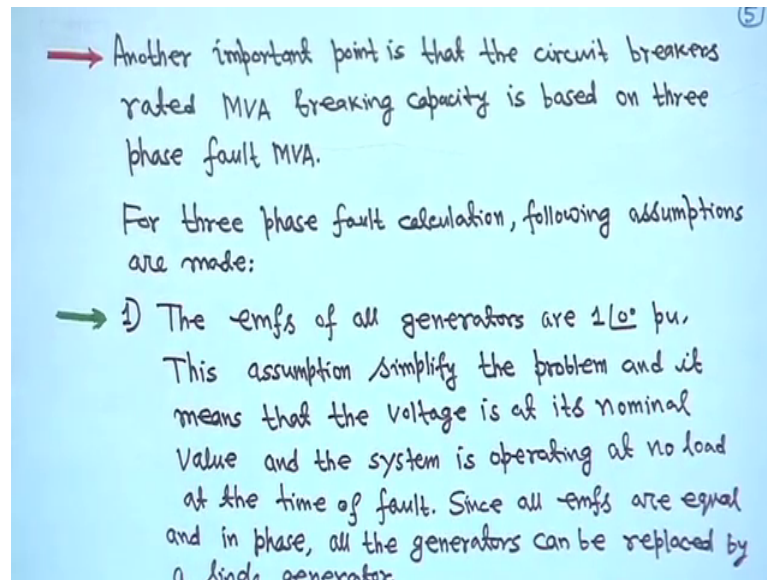 5
→ Another important point is that the circuit breakers
rated MVA breaking capacity is based on three
phase fault MVA.
For three phase fault calculation, following assumptions
are made:
→ 1) The emfs of all generators are 1∠0° pu.
This assumption simplify the problem and it
means that the voltage is at its nominal
value and the system is operating at no load
at the time of fault. Since all emfs are equal
and in phase, all the generators can be replaced by
a single generator.